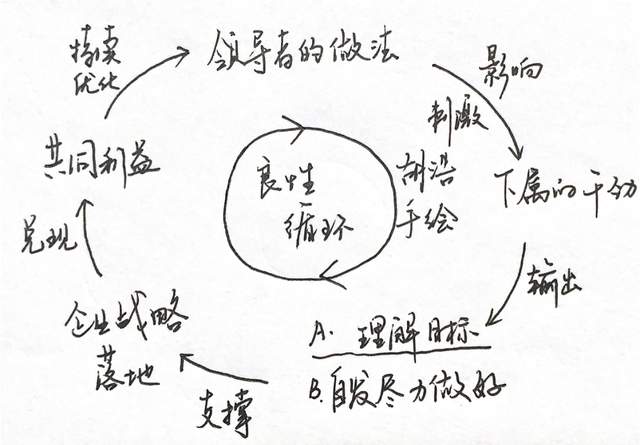 领导者的做法
影响
刺激
下属的干劲
输出
A. 理解目标
B. 自发尽力做好
支撑
企业战略
落地
兑现
共同利益
持续
优化
良性
循环
胡浩
手绘